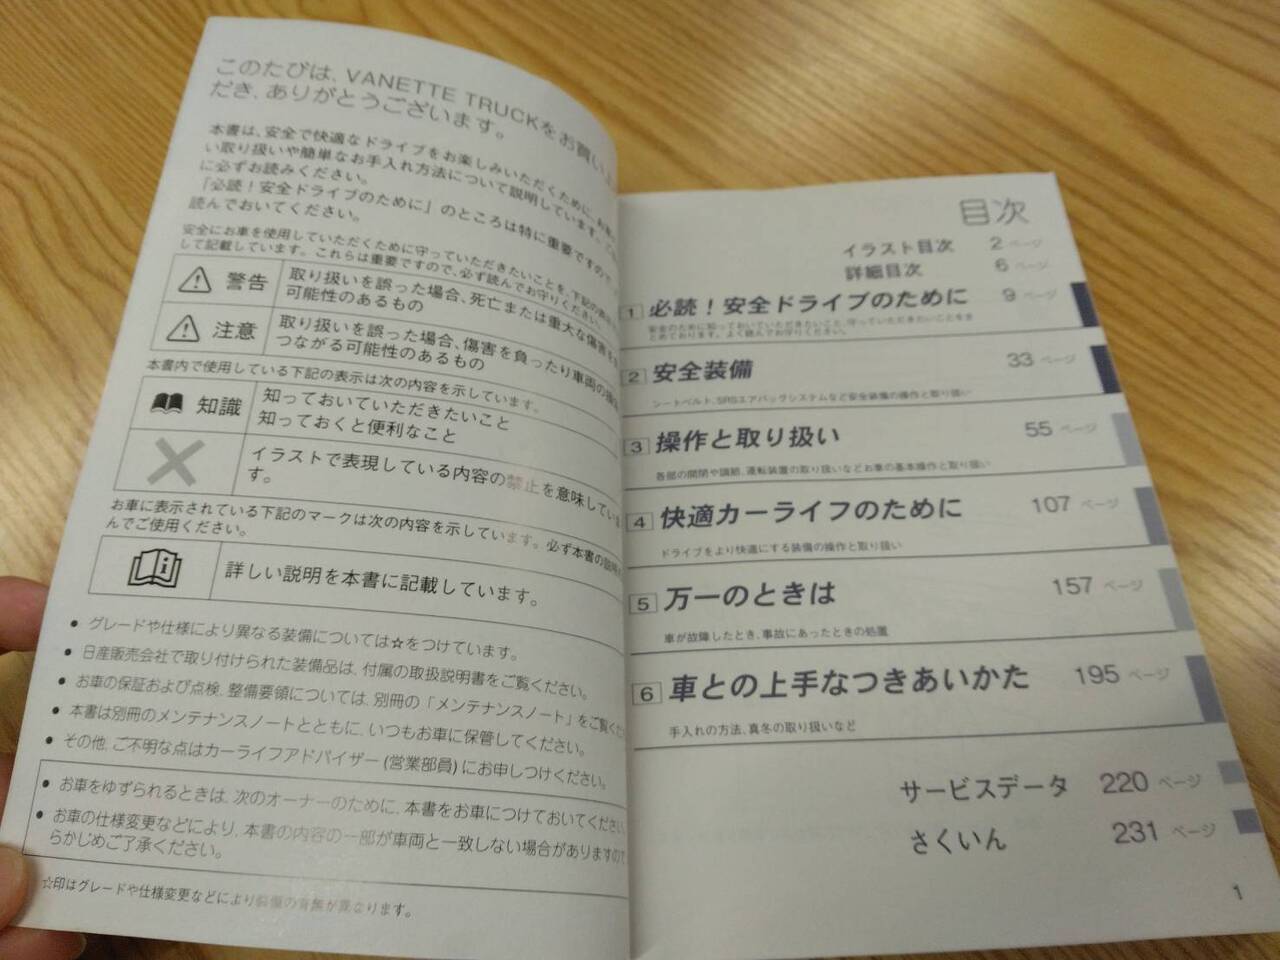 このたびは、VANETTE TRUCKをお買い上
だき、ありがとうございます。
本書は、安全で快適なドライブをお楽しみいただくために、お車
い取り扱いや簡単なお手入れ方法について説明しています。
に必ずお読みください。
「必読！安全ドライブのために」のところは特に重要ですので
読んでおいてください。
安全にお車を使用していただくために守っていただきたいことを、下記の表示
して記載しています。これらは重要ですので、必ず読んでお守りください。
警告 取り扱いを誤った場合、死亡または重大な傷害を
可能性のあるもの
注意 取り扱いを誤った場合、傷害を負ったり車両の損
つながる可能性のあるもの
本書内で使用している下記の表示は次の内容を示しています。
知識 知っておいていただきたいこと
知っておくと便利なこと
イラストで表現している内容の禁止を意味していま
す。
お車に表示されている下記のマークは次の内容を示しています。必ず本書の説明
んでご使用ください。
詳しい説明を本書に記載しています。
● グレードや仕様により異なる装備については☆をつけています。
● 日産販売会社で取り付けられた装備品は、付属の取扱説明書をご覧ください。
● お車の保証および点検、整備要領については、別冊の「メンテナンスノート」をご覧くだ
● 本書は別冊のメンテナンスノートとともに、いつもお車に保管してください。
● その他、ご不明な点はカーライフアドバイザー(営業部員)にお申しつけください。
● お車をゆずられるときは、次のオーナーのために、本書をお車につけておいてください
● お車の仕様変更などにより、本書の内容の一部が車両と一致しない場合がありますので
らかじめご了承ください。
☆印はグレードや仕様変更などにより装備の有無が異なります。
目次
イラスト目次 2 ページ
詳細目次 6 ページ
1 必読！安全ドライブのために 9 ページ
安全のために知っておいていただきたいこと、守っていただきたいことをま
とめております。よく読んでお守りください。
2 安全装備 33 ページ
シートベルト、SRSエアバッグシステムなど安全装備の操作と取り扱い
3 操作と取り扱い 55 ページ
各部の開閉や調節、運転装置の取り扱いなどお車の基本操作と取り扱い
4 快適カーライフのために 107 ページ
ドライブをより快適にする装備の操作と取り扱い
5 万一のときは 157 ページ
車が故障したとき、事故にあったときの処置
6 車との上手なつきあいかた 195 ページ
手入れの方法、真冬の取り扱いなど
サービスデータ 220 ページ
さくいん 231 ページ
1